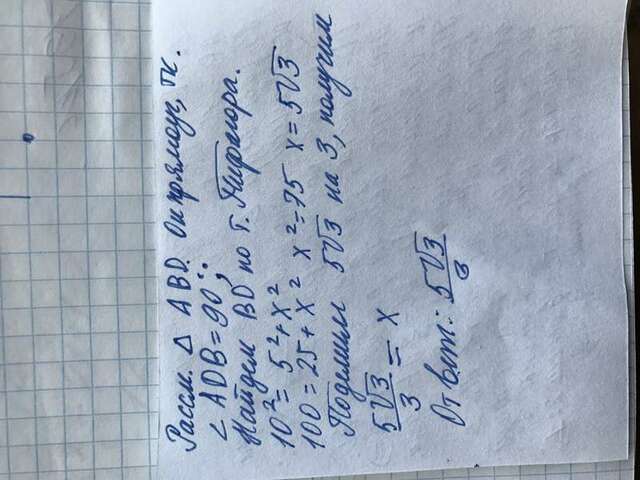 Рассм. △ ABD. Он прямоуг, тк.
∠ ADB = 90°.
Найдем BD по т. Пифагора.
10² = 5² + x²
100 = 25 + x² x² = 75 x = 5√3
Поделим 5√3 на 3, получим
5√3/3 = x
Ответ: 5√3/3